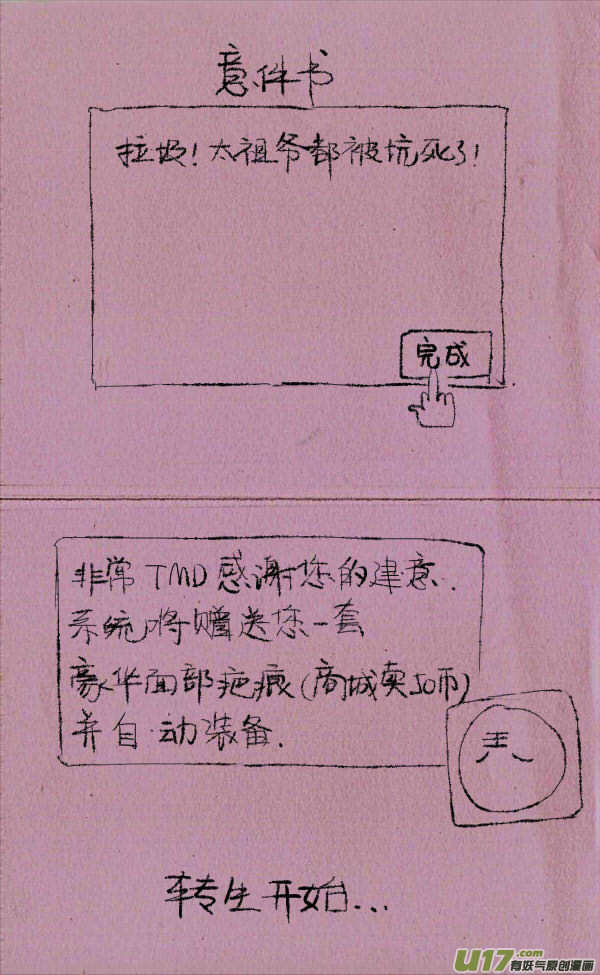 意件书
拉圾！太祖爷都被坑死了！
完成
非常TMD感谢您的建意.
系统将赠送您一套
豪华面部疤痕(商城卖50币)
并自动装备.
王八
转生开始...
U17.com
有妖气原创漫画